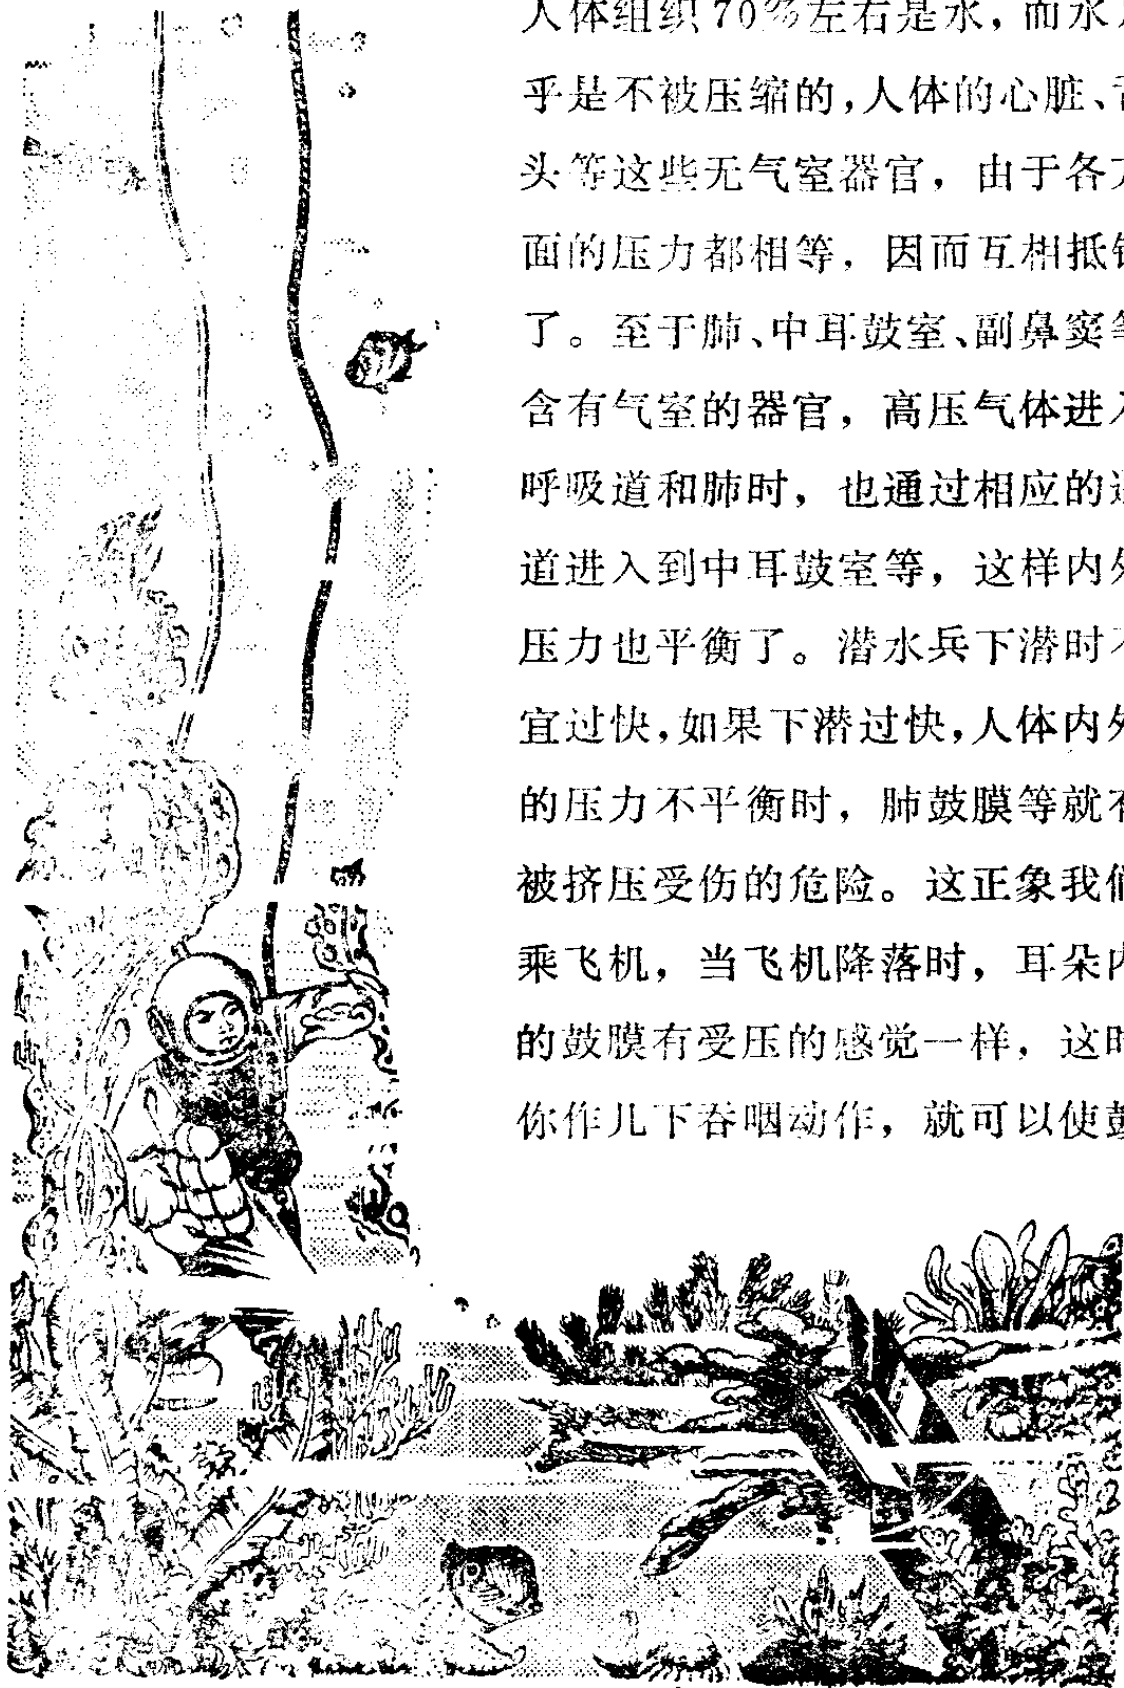 人体组织70%左右是水，而水
乎是不被压缩的，人体的心脏、
头等这些无气室器官，由于各
面的压力都相等，因而互相抵
了。至于肺、中耳鼓室、副鼻窦
含有气室的器官，高压气体进
呼吸道和肺时，也通过相应的
道进入到中耳鼓室等，这样内
压力也平衡了。潜水兵下潜时
宜过快，如果下潜过快，人体内
的压力不平衡时，肺鼓膜等就
被挤压受伤的危险。这正象我
乘飞机，当飞机降落时，耳朵
的鼓膜有受压的感觉一样，这
你作几下吞咽动作，就可以使